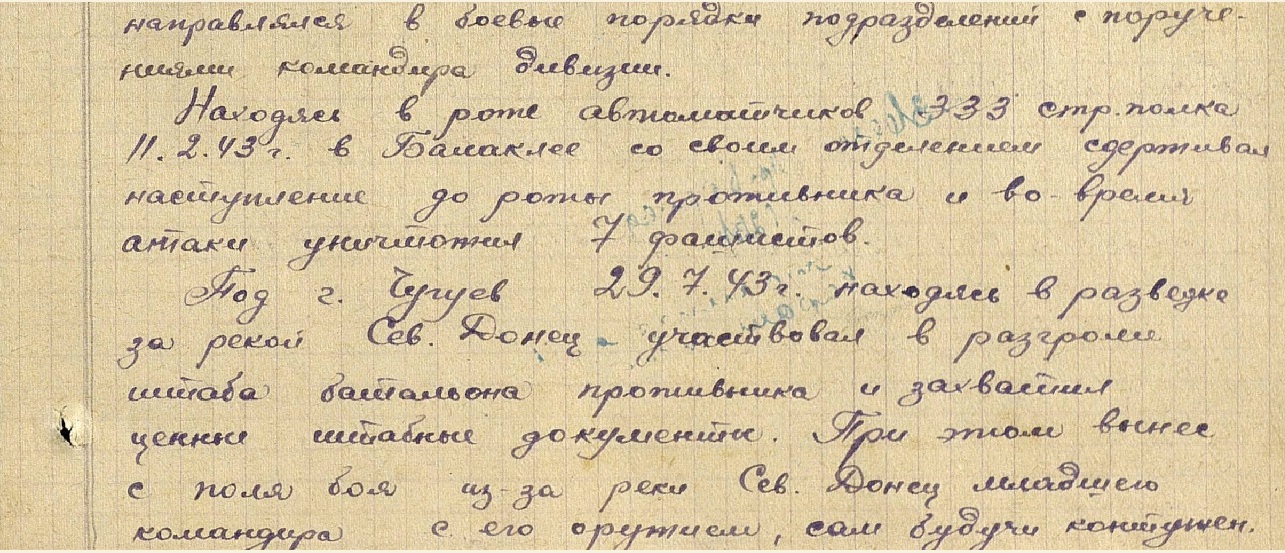 направлялся в боевые порядки подразделений с поруче-
ниями командира дивизии.
Находясь в роте автоматчиков 333 стр. полка
11.2.43 г. в Балаклее со своим отделением сдерживал
наступление до роты противника и во-время
атаки уничтожил 7 фашистов.
Под г. Чугуев 29.7.43 г. находясь в разведке
за рекой Сев. Донец участвовал в разгроме
штаба батальона противника и захватил
ценные штабные документы. При этом вынес
с поля боя из-за реки Сев. Донец младшего
командира с его оружием, сам будучи контужен.